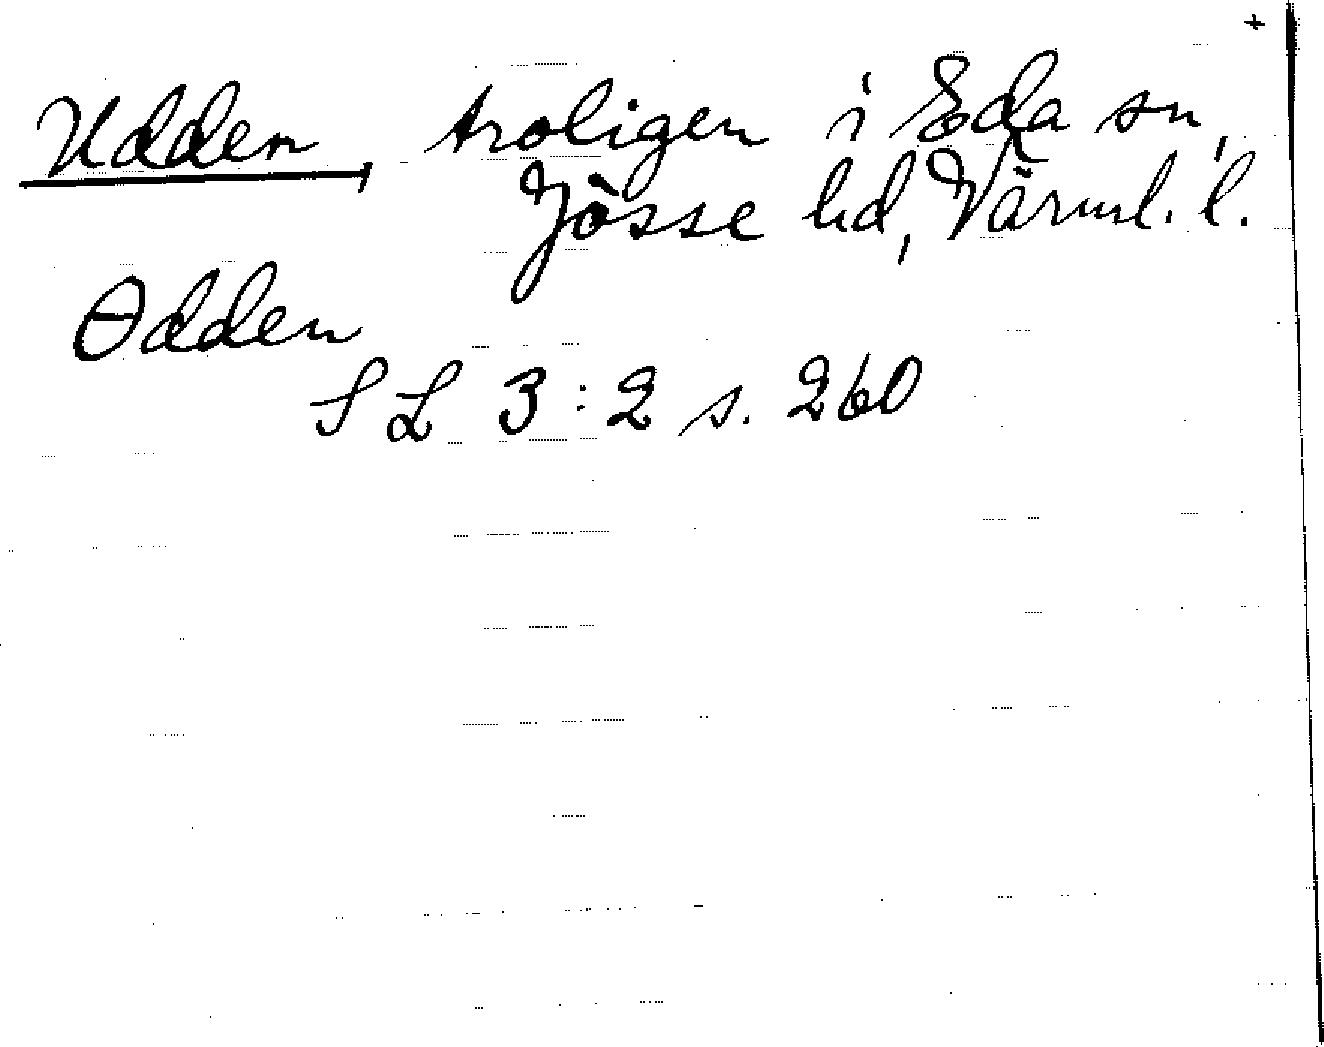 +
Udden, troligen i Eda sn,
Jösse hd, Värml. l.
Odden
SL 3:2 s. 260